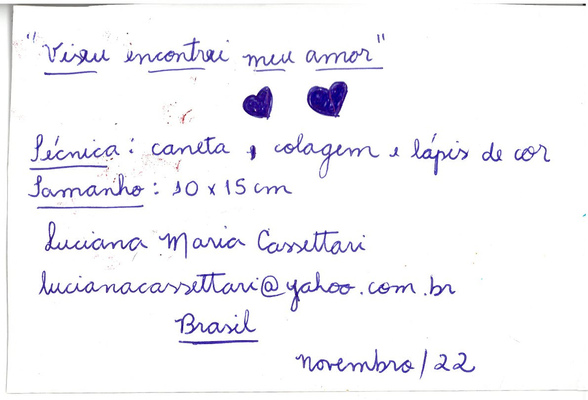 "Viseu encontrei meu amor"
Técnica: caneta, colagem e lápis de cor
Tamanho: 10 x 15 cm
Luciana Maria Cassettari
lucianacassettari@yahoo.com.br
Brasil
novembro/22